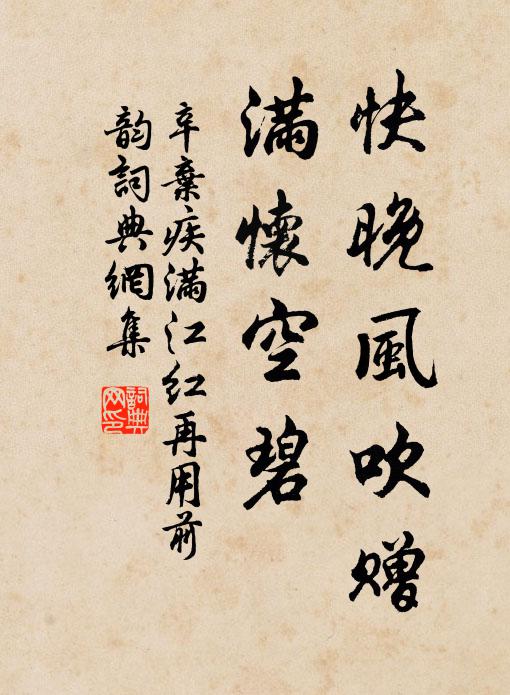 快晚風吹贈
滿懷空碧
辛棄疾滿江紅再用前
韵詞典網集
詞典
网印